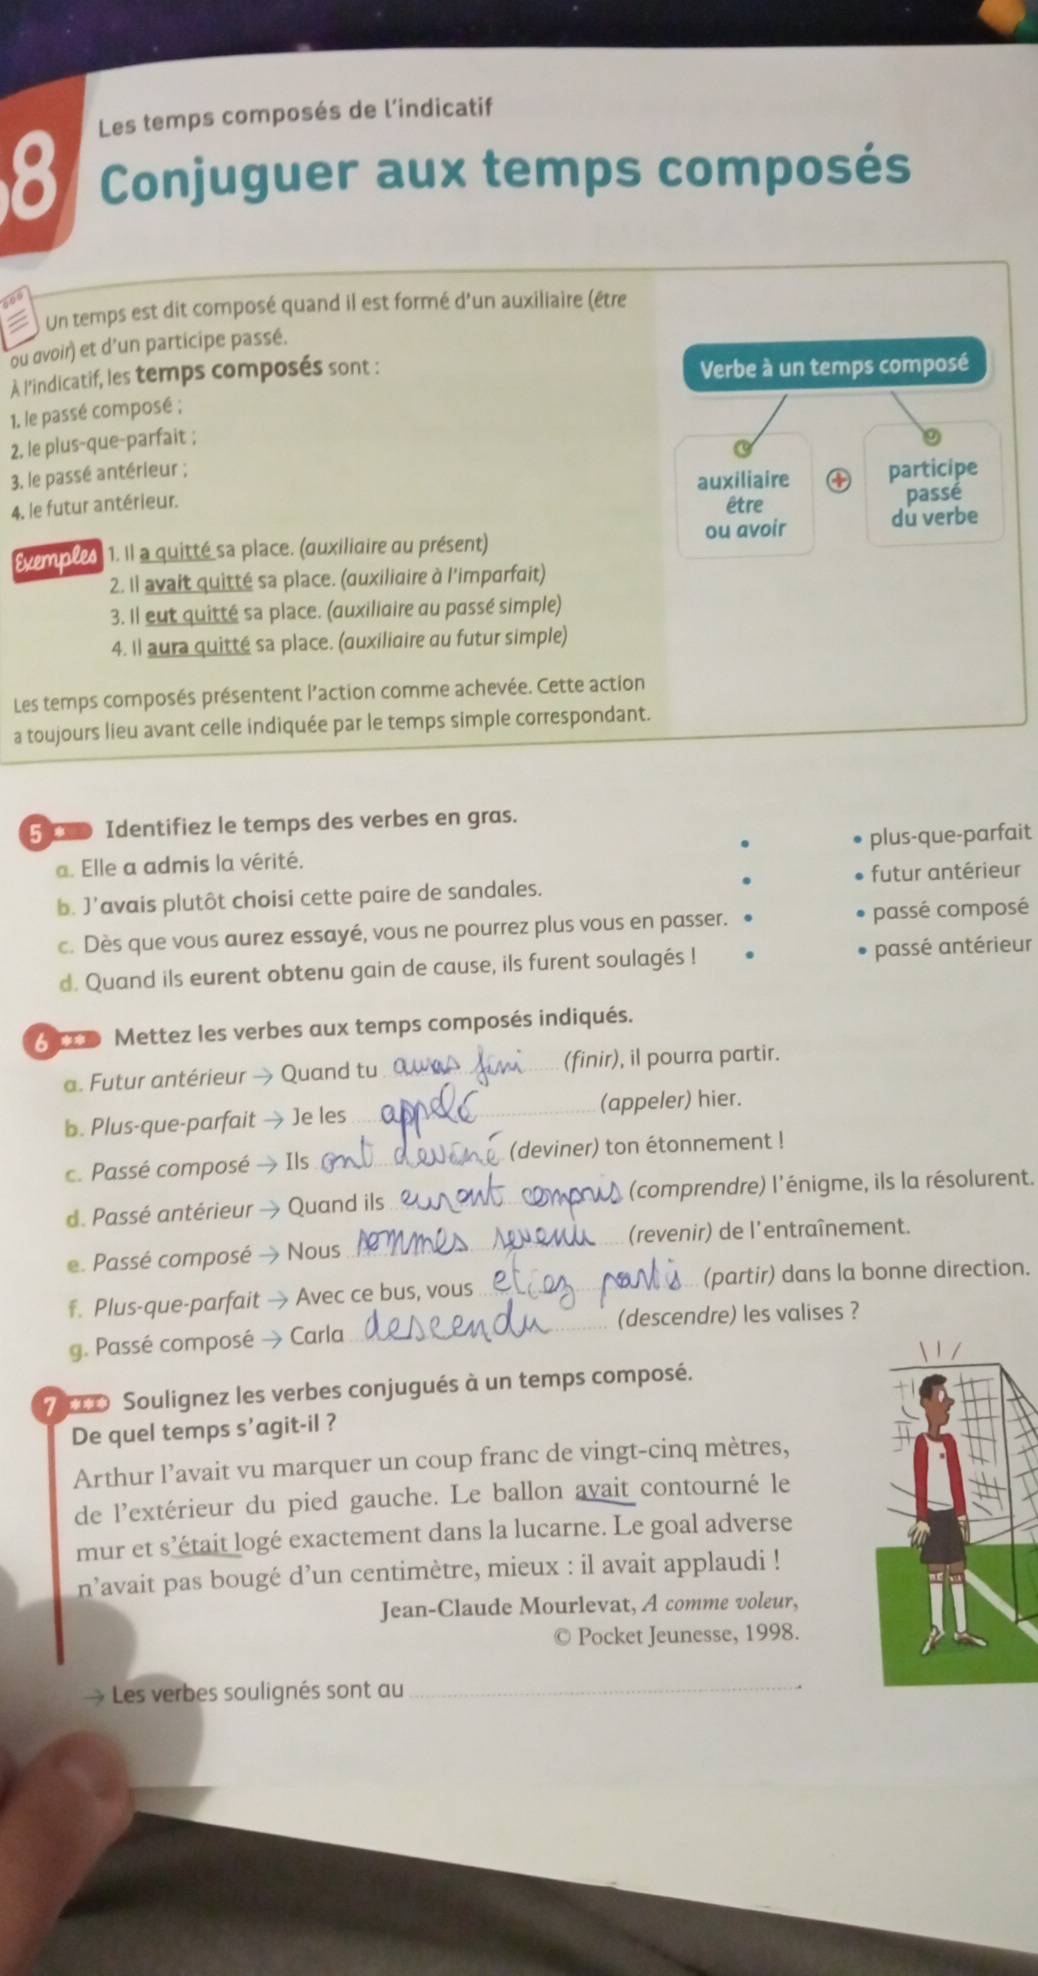 Les temps composés de l'indicatif
8 Conjuguer aux temps composés
Un temps est dit composé quand il est formé d'un auxiliaire (être
ou avoir) et d'un participe passé.
À l'indicatif, les temps composés sont :
1. le passé composé ;
2. le plus-que-parfait ;
3. le passé antérieur ;
4. le futur antérieur.
Verbe à un temps composé
auxiliaire
être
ou avoir
+
participe
passé
du verbe
Exemples 1. Il a quitté sa place. (auxiliaire au présent)
2. Il avait quitté sa place. (auxiliaire à l'imparfait)
3. Il eut quitté sa place. (auxiliaire au passé simple)
4. Il aura quitté sa place. (auxiliaire au futur simple)
Les temps composés présentent l'action comme achevée. Cette action
a toujours lieu avant celle indiquée par le temps simple correspondant.
5 * Identifiez le temps des verbes en gras.
a. Elle a admis la vérité. • • plus-que-parfait
b. J'avais plutôt choisi cette paire de sandales. • • futur antérieur
c. Dès que vous aurez essayé, vous ne pourrez plus vous en passer. • • passé composé
d. Quand ils eurent obtenu gain de cause, ils furent soulagés ! • • passé antérieur
6 ** Mettez les verbes aux temps composés indiqués.
a. Futur antérieur → Quand tu fini (finir), il pourra partir.
b. Plus-que-parfait → Je les appelé (appeler) hier.
c. Passé composé → Ils ont deviné (deviner) ton étonnement !
d. Passé antérieur → Quand ils euront compris (comprendre) l'énigme, ils la résolurent.
e. Passé composé → Nous sommes revenu (revenir) de l'entraînement.
f. Plus-que-parfait → Avec ce bus, vous etiez partis (partir) dans la bonne direction.
g. Passé composé → Carla descendu (descendre) les valises ?
7 *** Soulignez les verbes conjugués à un temps composé.
De quel temps s'agit-il ?
Arthur l'avait vu marquer un coup franc de vingt-cinq mètres,
de l'extérieur du pied gauche. Le ballon avait contourné le
mur et s'était logé exactement dans la lucarne. Le goal adverse
n'avait pas bougé d'un centimètre, mieux : il avait applaudi !
Jean-Claude Mourlevat, A comme voleur,
© Pocket Jeunesse, 1998.
→ Les verbes soulignés sont au .